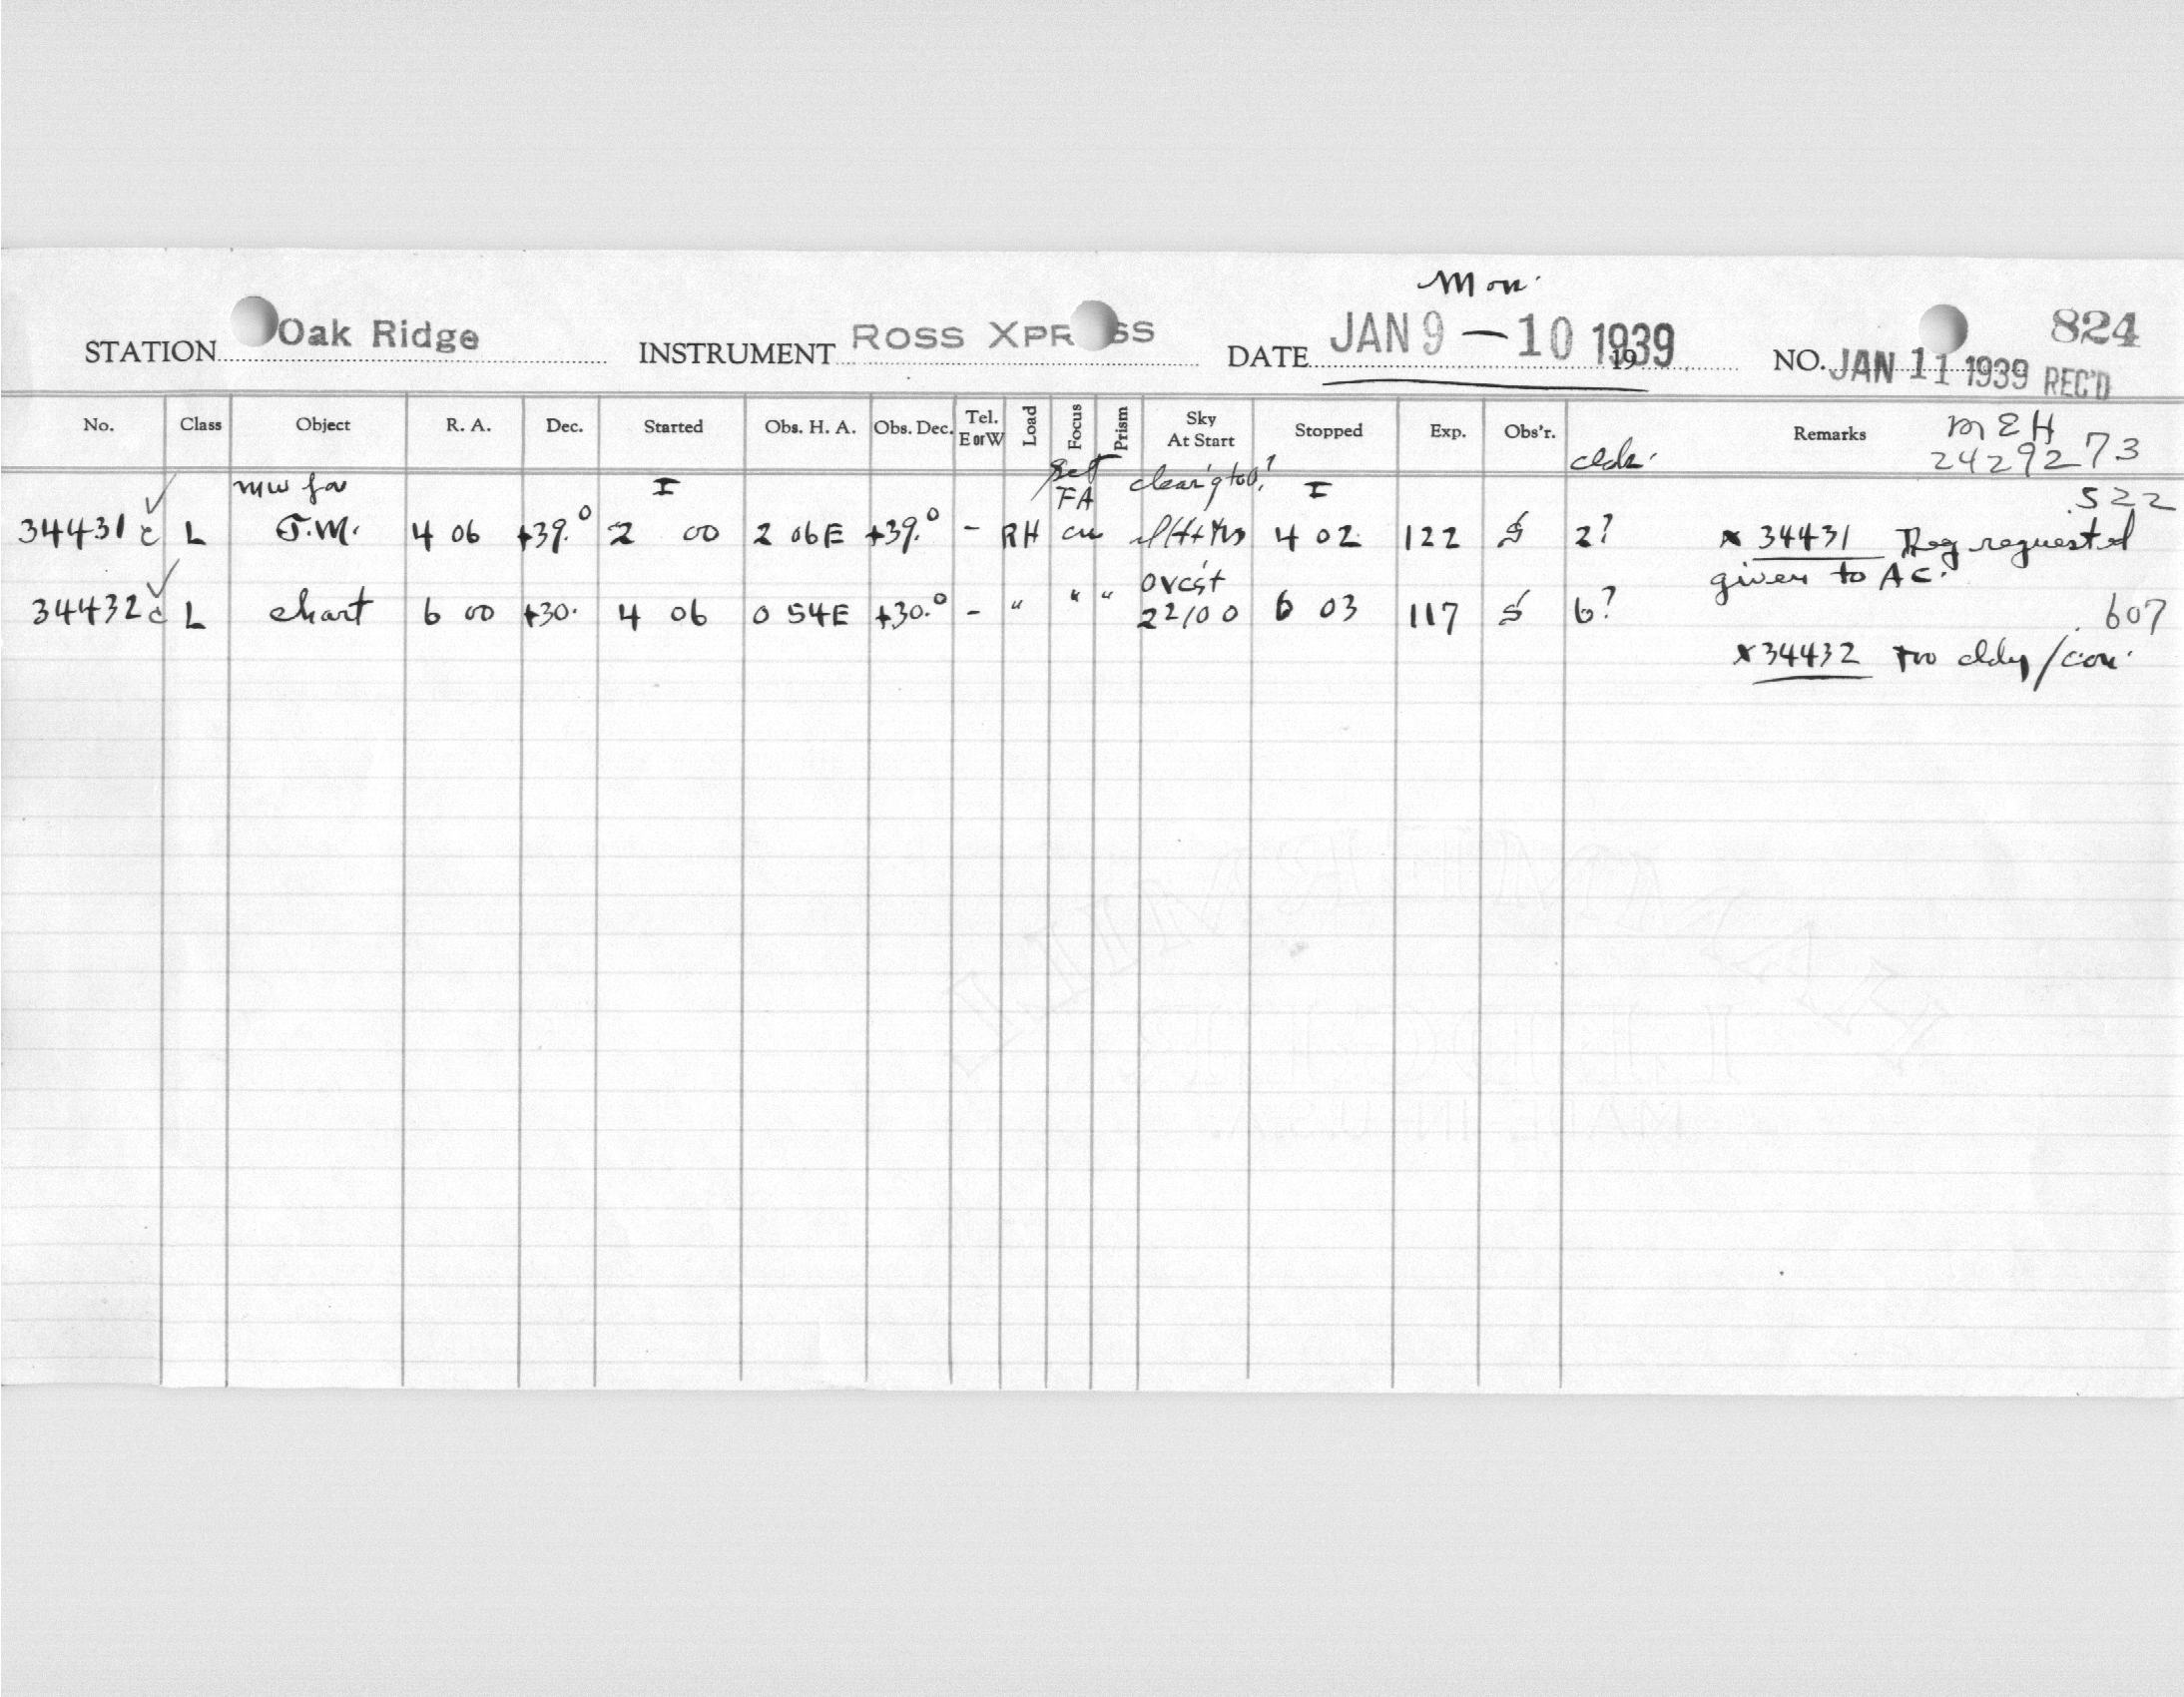 Mon.
STATION Oak Ridge INSTRUMENT ROSS XPRESS DATE JAN 9 — 10 1939 19 NO. JAN 11 1939 REC'D 824
No. Class Object R. A. Dec. Started Obs. H. A. Obs. Dec. Tel. E or W Load Focus Prism Sky At Start Stopped Exp. Obs'r. Remarks MEH
2429273
mw for I Set FA I .522
34431 c L T.M. 4 06 +39.° 2 00 2 06E +39.° - RH 4 02 122 2? x 34431 requested
given to AC.
ovcst
34432 c L chart 6 00 +30. 4 06 0 54E +30.° - " " " 22/00 6 03 117 6? .607
x34432 too cldy/con.